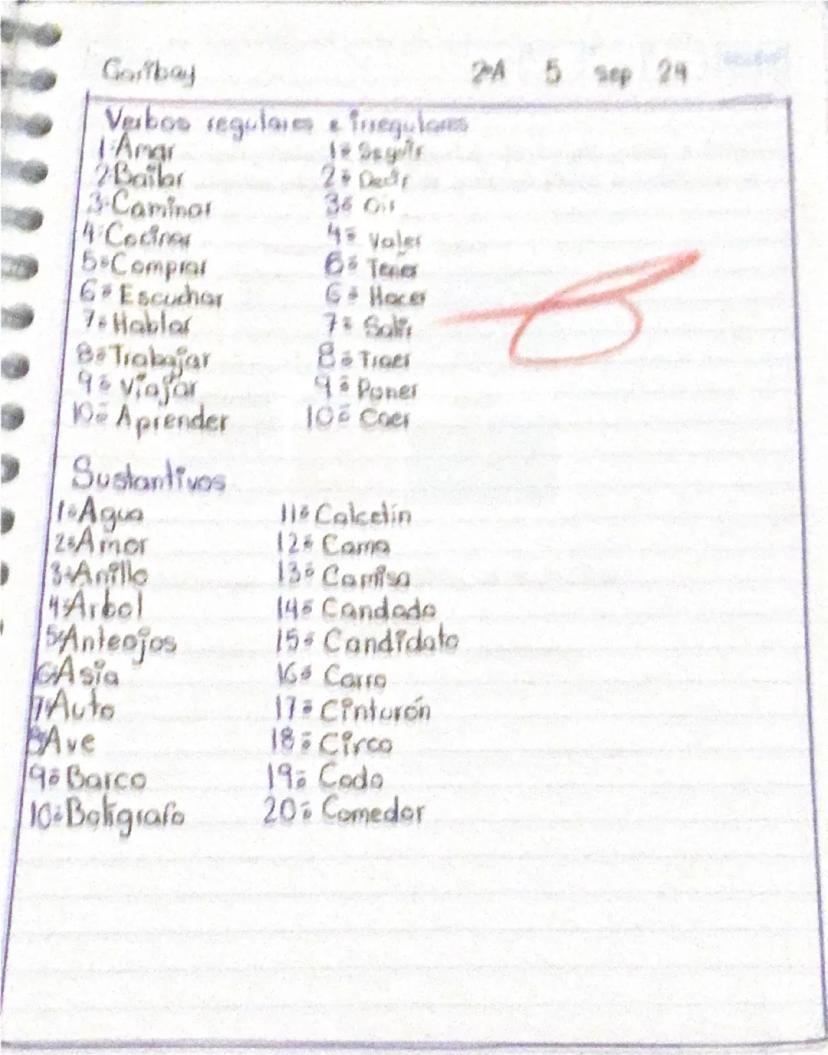 Garibay 2°A 5 sep 24
Verbos regulares e irregulares
1°Amar 1° Seguir
2°Bailar 2° Decir
3°Caminar 3° Oir
4°Cocinar 4° Valer
5°Comprar 5° Tener
6°Escuchar 6° Hacer
7°Hablar 7° Salir
8°Trabajar 8° Traer
9° Viajar 9° Poner
10° Aprender 10° Caer
Sustantivos
1°Agua 11° Calcetín
2°Amor 12° Cama
3°Anillo 13° Camisa
4°Arbol 14° Candado
5°Anteojos 15° Candidato
6°Asia 16° Carro
7°Auto 17° Cinturón
8°Ave 18° Circo
9° Barco 19° Codo
10°Boligrafo 20° Comedor